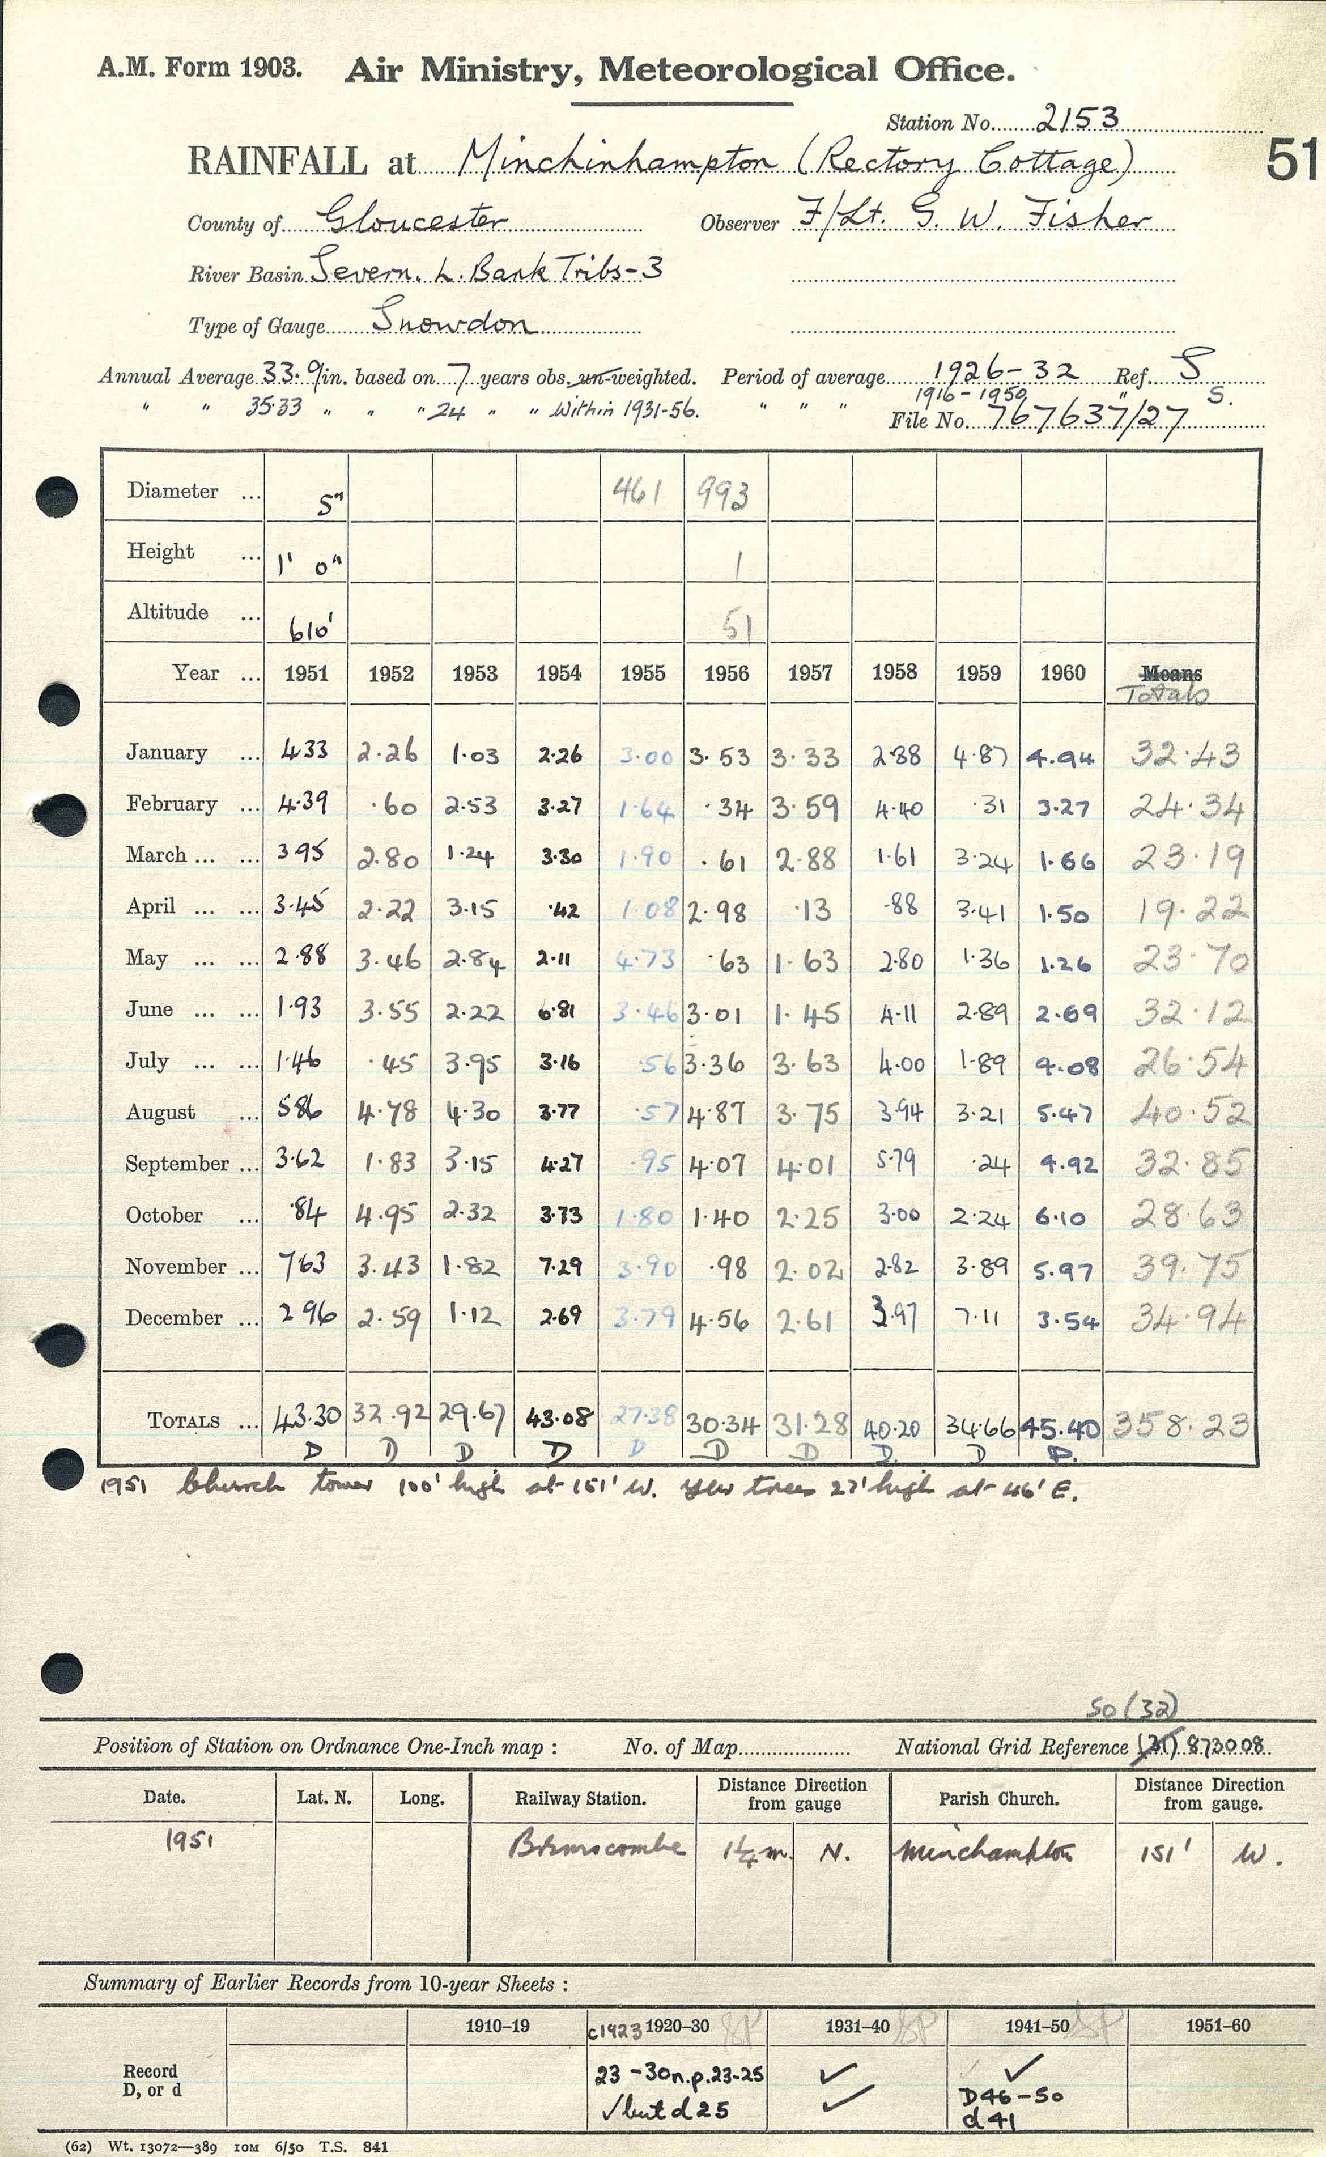 A.M. Form 1903. Air Ministry, Meteorological Office.
Station No. 2153
RAINFALL at Minchinhampton (Rectory Cottage) 51
County of Gloucester Observer F/Lt. G. W. Fisher
River Basin Severn. L. Bank Tribs-3
Type of Gauge Snowdon
Annual Average 33.9 in. based on 7 years obs. un-weighted. Period of average 1926-32 Ref. S
" " 35.33 " " " 24 " " Within 1931-56. " " " 1916-1950 " S.
File No. 767637/27
Diameter ... 5" 461 993
Height ... 1' 0" 1
Altitude ... 610' 51
Year ... 1951 1952 1953 1954 1955 1956 1957 1958 1959 1960 Means
Totals
January ... 4.33 2.26 1.03 2.26 3.00 3.53 3.33 2.88 4.87 4.94 32.43
February ... 4.39 .60 2.53 3.27 1.64 .34 3.59 4.40 .31 3.27 24.34
March ... ... 3.95 2.80 1.24 3.30 1.90 .61 2.88 1.61 3.24 1.66 23.19
April ... ... 3.45 2.22 3.15 .42 1.08 2.98 .13 .88 3.41 1.50 19.22
May ... ... 2.88 3.46 2.84 2.11 4.73 .63 1.63 2.80 1.36 1.26 23.70
June ... ... 1.93 3.55 2.22 6.81 3.46 3.01 1.45 4.11 2.89 2.69 32.12
July ... ... 1.46 .45 3.95 3.16 .56 3.36 3.63 4.00 1.89 4.08 26.54
August ... 5.86 4.78 4.30 3.77 .57 4.87 3.75 3.94 3.21 5.47 40.52
September ... 3.62 1.83 3.15 4.27 .95 4.07 4.01 5.79 .24 4.92 32.85
October ... .84 4.95 2.32 3.73 1.80 1.40 2.25 3.00 2.24 6.10 28.63
November ... 7.63 3.43 1.82 7.29 3.90 .98 2.02 2.82 3.89 5.97 39.75
December ... 2.96 2.59 1.12 2.69 3.79 4.56 2.61 3.97 7.11 3.54 34.94
TOTALS ... 43.30 32.92 29.67 43.08 27.38 30.34 31.28 40.20 34.66 45.40 358.23
D D D D D D D D D D.
1951 Church tower 100' high at 151' W. Yew trees 27' high at 46' E.
SO (32)
Position of Station on Ordnance One-Inch map : No. of Map National Grid Reference (31) 873008.
Date. Lat. N. Long. Railway Station. Distance from gauge Direction Parish Church. Distance from gauge. Direction
1951 Brimscombe 1¼ m. N. Minchampton 151' W.
Summary of Earlier Records from 10-year Sheets :
1910-19 c1923 1920-30 SP 1931-40 SP 1941-50 SP 1951-60
Record 23-30 n.p. 23-25 ✓ ✓
D, or d ✓ but d 25 ✓ D 46-50
d 41
(62) Wt. 13072—389 10M 6/50 T.S. 841